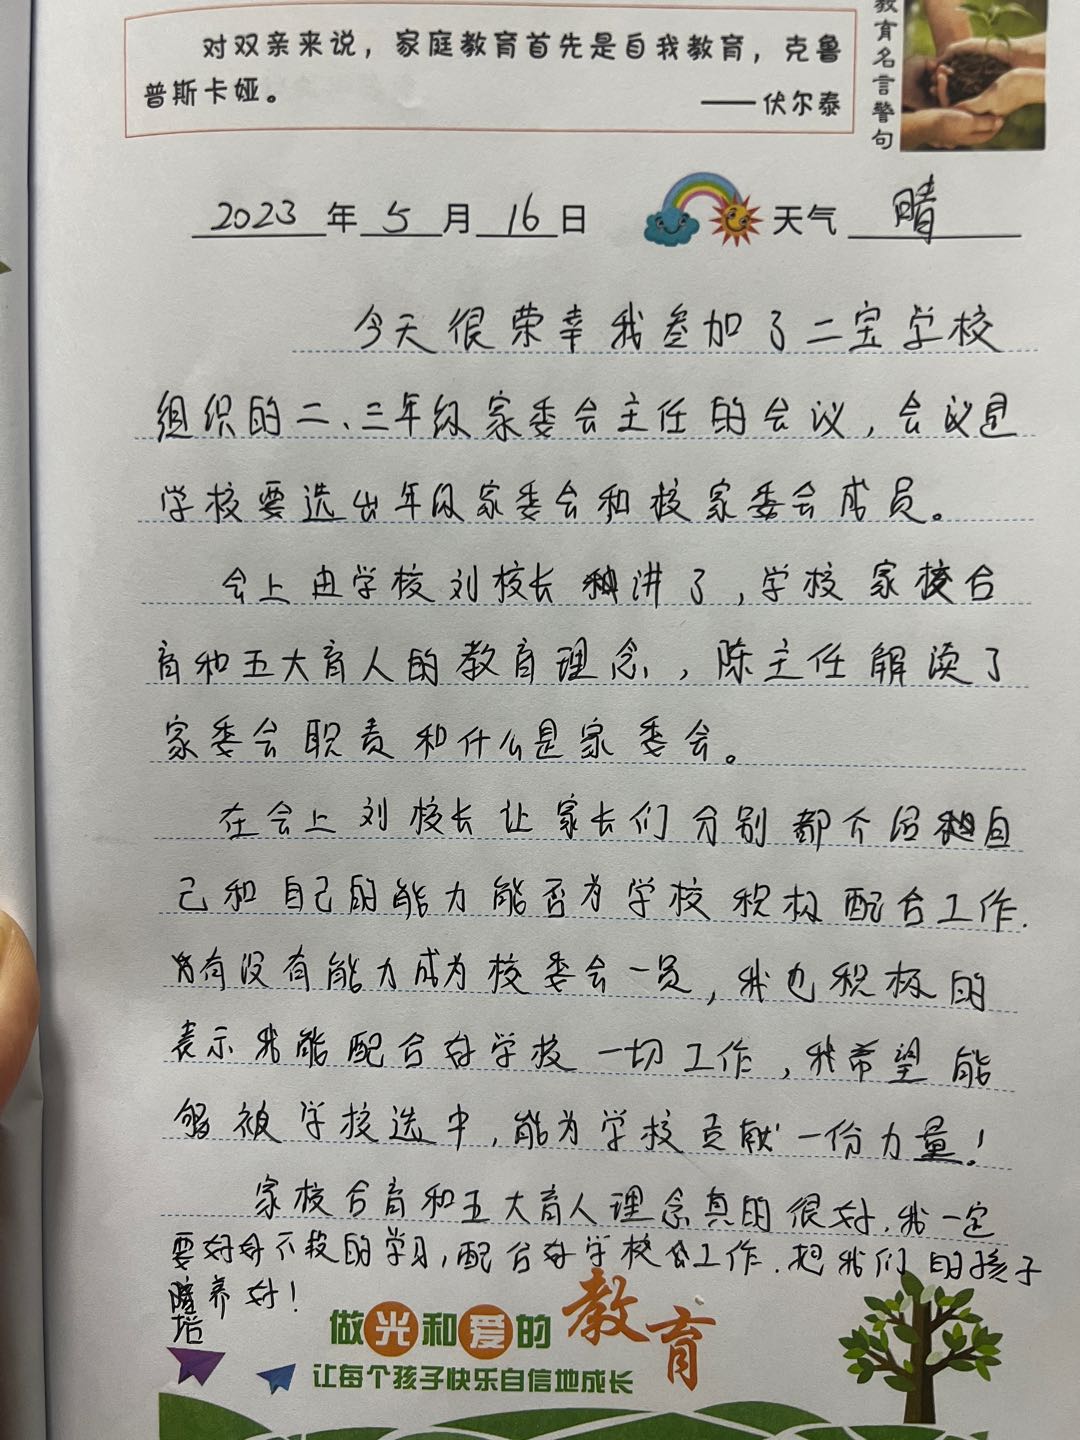 对双亲来说，家庭教育首先是自我教育，克鲁
普斯卡娅。 ——伏尔泰
教育名言警句
2023年5月16日 天气 晴
今天很荣幸我参加了二宝学校
组织的二、三年级家委会主任的会议，会议是
学校要选出年级家委会和校家委会成员。
会上由学校刘校长讲了，学校家校合
育和五大育人的教育理念，陈主任解读了
家委会职责和什么是家委会。
在会上刘校长让家长们分别都介绍自
己和自己的能力能否为学校积极配合工作.
有没有能力成为校委会一员，我也积极的
表示我能配合好学校一切工作，我希望能
够被学校选中，能为学校贡献一份力量！
家校合育和五大育人理念真的很好.我一定
要好好不找的学习，配合好学校工作.把我们的孩子
培养好！
做光和爱的教育
让每个孩子快乐自信地成长